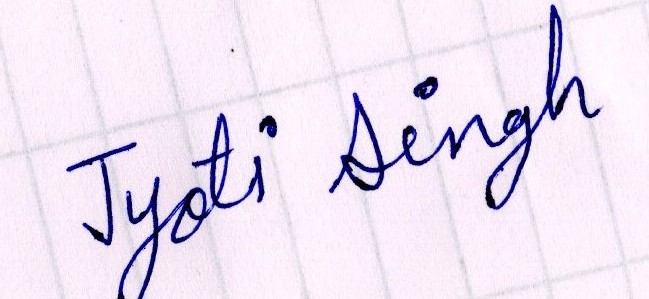 Jyoti Singh